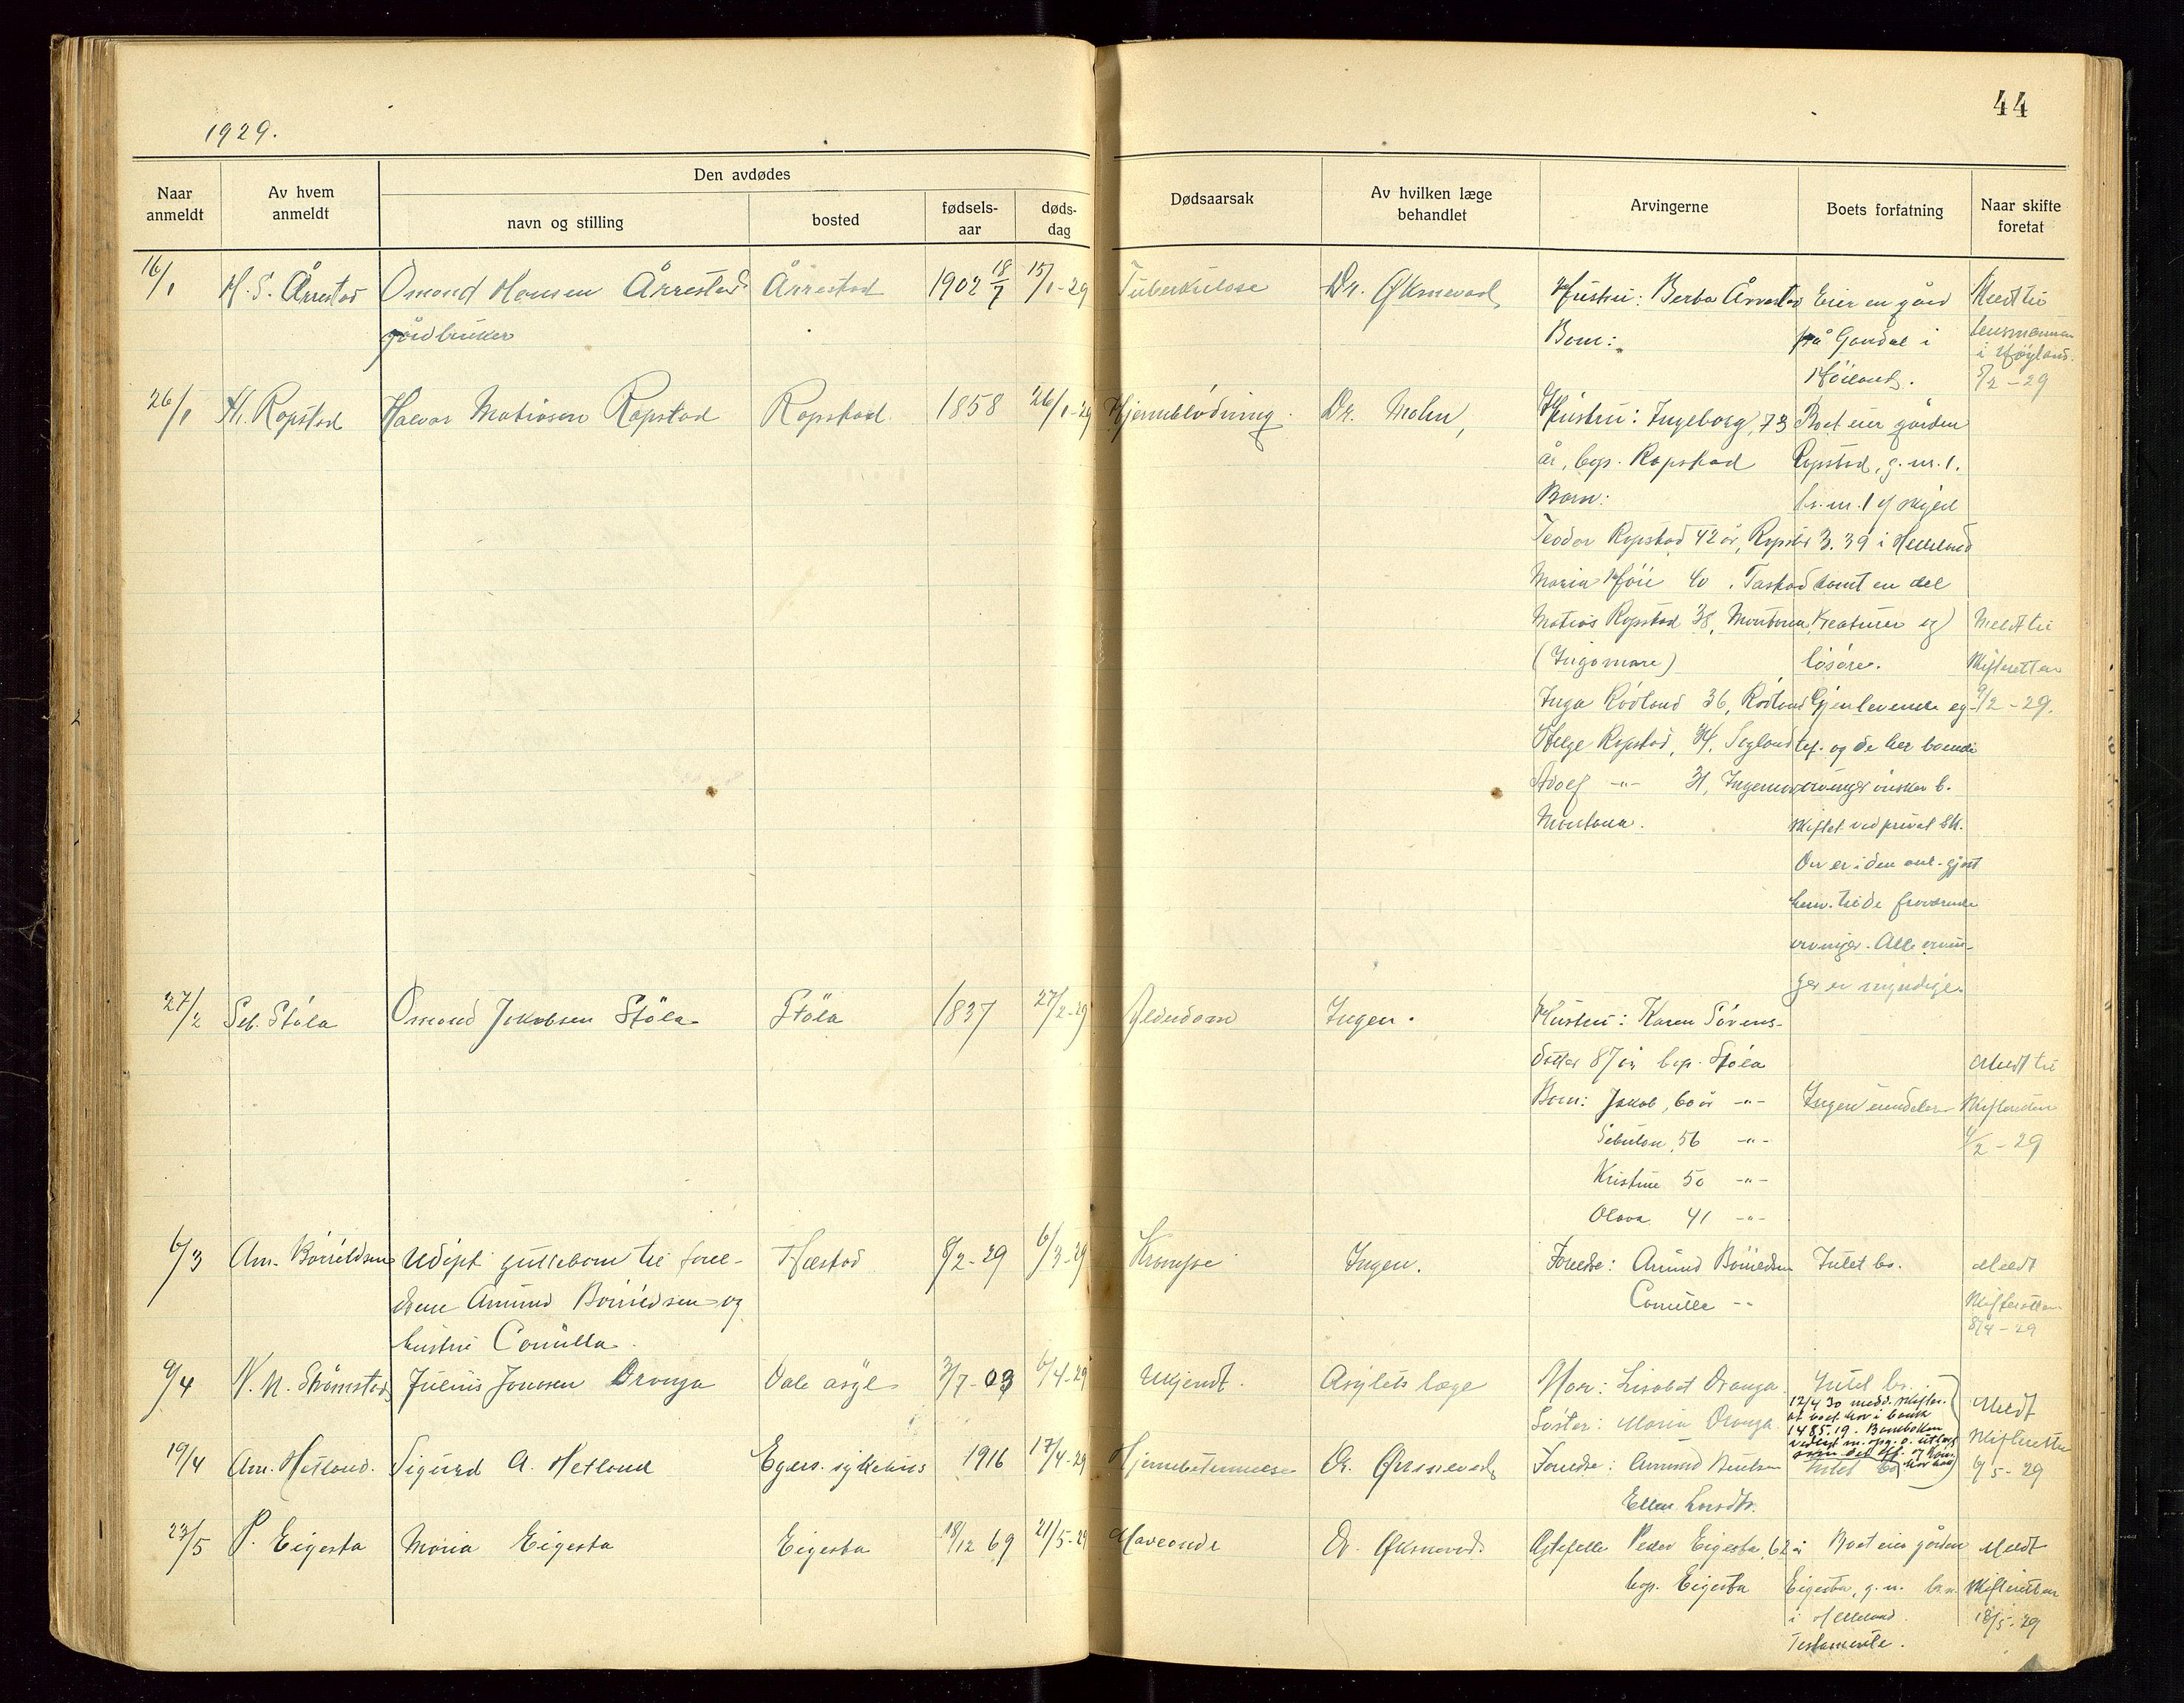 1929.
44
Naar anmeldt
Av hvem anmeldt
Den avdødes
navn og stilling
bosted
fødsels-aar
døds-dag
Dødsaarsak
Av hvilken læge behandlet
Arvingerne
Boets forfatning
Naar skifte foretat
16/1 H. S. Årrestad Osmond Hansen Årrestad Årrestad 1902 18/7 15/1-29 Tuberkulose Dr. Øksnevad Hustru: Berta Årrestad Eier en gård Meldt til
gårdbruker Born: på Gandal i lensmannen
i Høyland.
Høiland. 5/2-29
26/1 H. Ropstad Halvor Matiasen Ropstad Ropstad 1858 26/1-29 Hjerneblødning. Dr. Malm, Hustru: Ingeborg, 73 Boet eier gården
år, bop. Ropstad Ropstad, g.nr. 1.
Born: br.nr. 1 af skyld
Teodor Ropstad 42 år, Ropstad 3.39 i Helleland
Maria Høie 40 . Tastad samt en del
Matias Ropstad 38, Montana Kreaturer og Meldt til
(Ingomare) løsøre. Skifteretten
Inga Rødland 36, Rødland Gjenlevende eg- 9/2-29.
Helge Ropstad, 34, Sogland tef. og de her boende
Adolf -"- 31, arvinger ønsker b.
Montana. skiftet ved privat sk.
On er i den anl. gjort
henv. til de fraværende
arvinger. Alle arvin-
ger er myndige.
27/2 Seb. Støla Osmond Jakobsen Støla Støla 1837 27/2-29 Alderdom Ingen. Hustru: Karen Sørens-
datter 87 år bop. Støla Meldt til
Born: Jakob, 60 år -"- Ingen eiendeler Skifteretten
Sebulon, 56 -"- /2-29
Kristine 50 -"-
Olava 41 -"-
6/3 Am. Udøpt guttebarn til forel- Hæstad 8/2-29 6/3-29 Krampe Ingen. Foreldre: Amund Intet bo. Meldt
drene Amund og Camilla -"- Skifteretten
hustru Camilla. 8/4-29
9/4 N. N. Skåmstad Julius Jonassen Dranga Dale asyl 3/7-03 6/4-29 Ukjendt. Asylets læge Mor: Lisabet Dranga. Intet bo.
Søster: Maria Dranga 12/4 30 medd. skifter. Meldt
at boet har i bank Skifteretten
1485.19. Bankboken
19/4 Am. Hetland. Sigurd A. Hetland Egers. sykehus 1916 17/4-29 Hjernebetennelse Dr. Øksnevad Foreldre: Amund Bentsen Intet bo /5-29
Ellen Larsdtr.
23/5 P. Eigesta Maria Eigesta Eigesta 18/12 69 21/5-29 Maveonde Dr. Øksnevad. Egtefelle Peder Eigesta, 62 år Boet eier gården Meldt
bop. Eigesta Eigesta, g.n. br.n. Skifteretten
i Helleland. 18/5-29
Testamente.